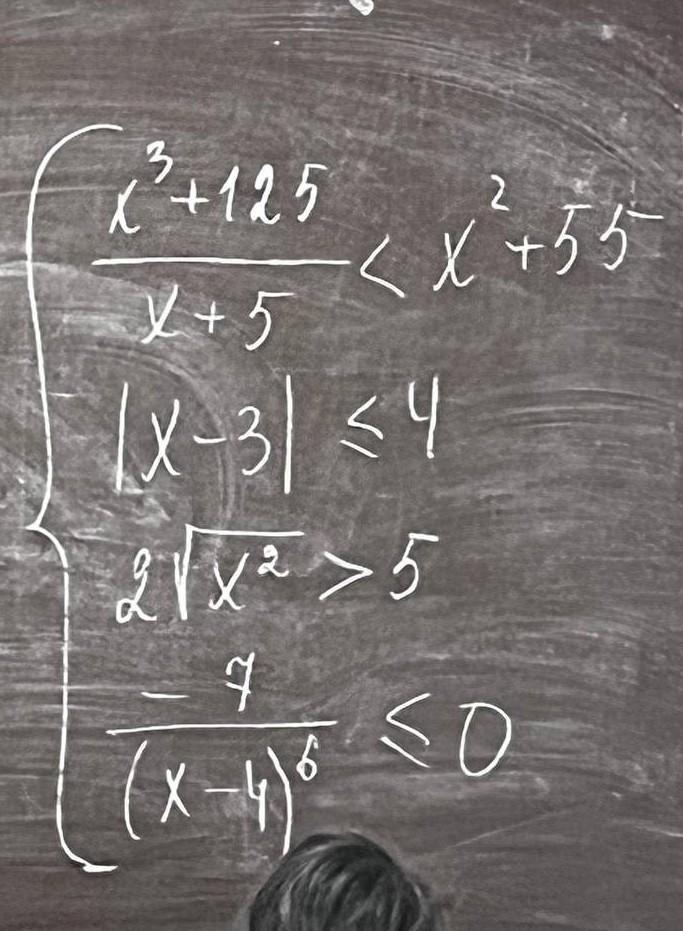 x³+125
x+5
< x²+55
|x-3| ≤ 4
2√x² > 5
-7
(x-4)⁶
≤ 0